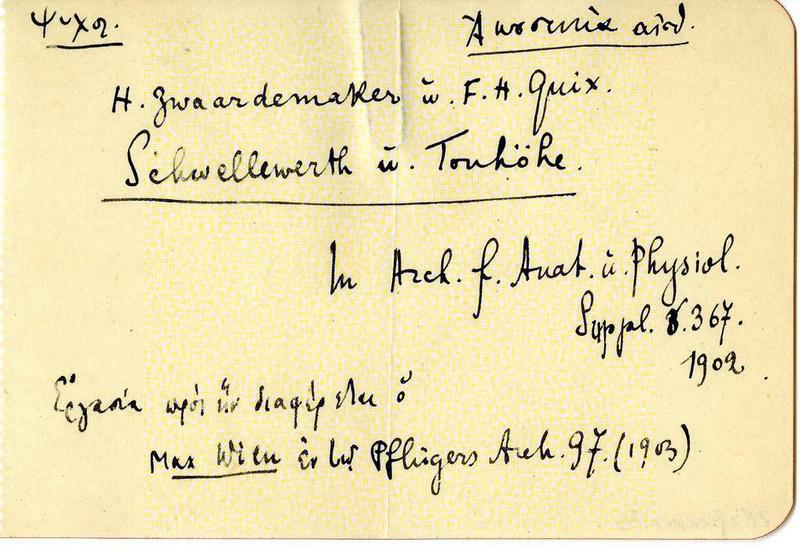 Ψυχολ. Ἀκουστικὰ αἰσθ.
H. Zwaardemaker ŭ. F. H. Quix.
Schwellewerth ŭ. Tonhöhe.
In Arch. f. Anat. ŭ. Physiol.
Suppl. S. 367.
1902
Ἐργασία πρὸς ἣν διαφέρεται ὁ
Max Wien ἐν τῷ Pflügers Arch. 97. (1903)